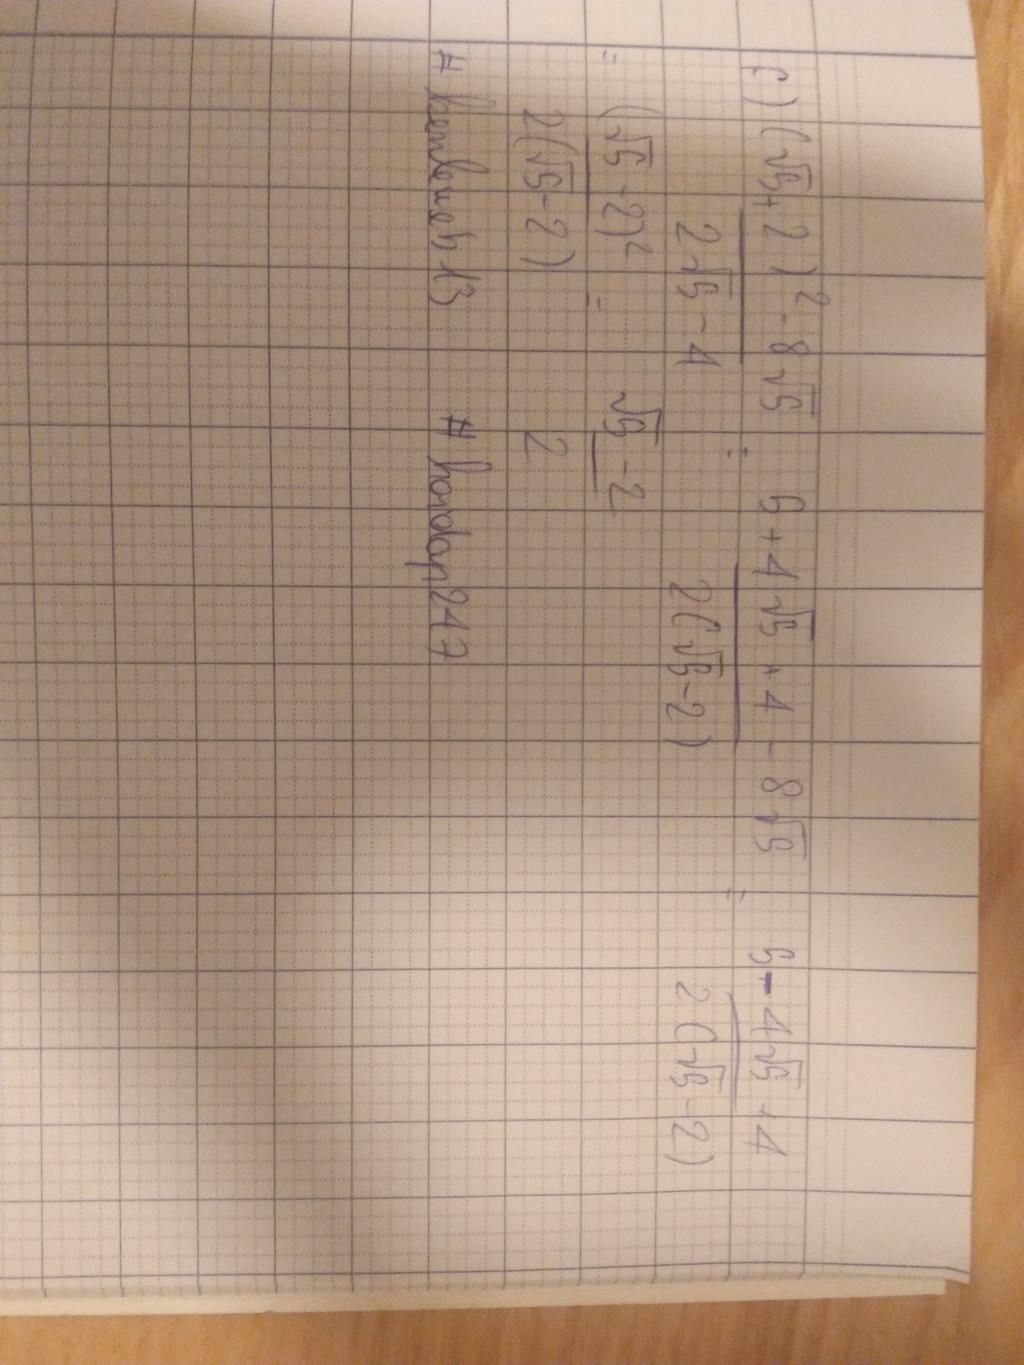 c) (√5+2)²-8√5 / 2√5-4 = 5+4√5+4-8√5 / 2(√5-2) = 5-4√5+4 / 2(√5-2)
= (√5-2)² / 2(√5-2) = √5-2 / 2
# hoidap247